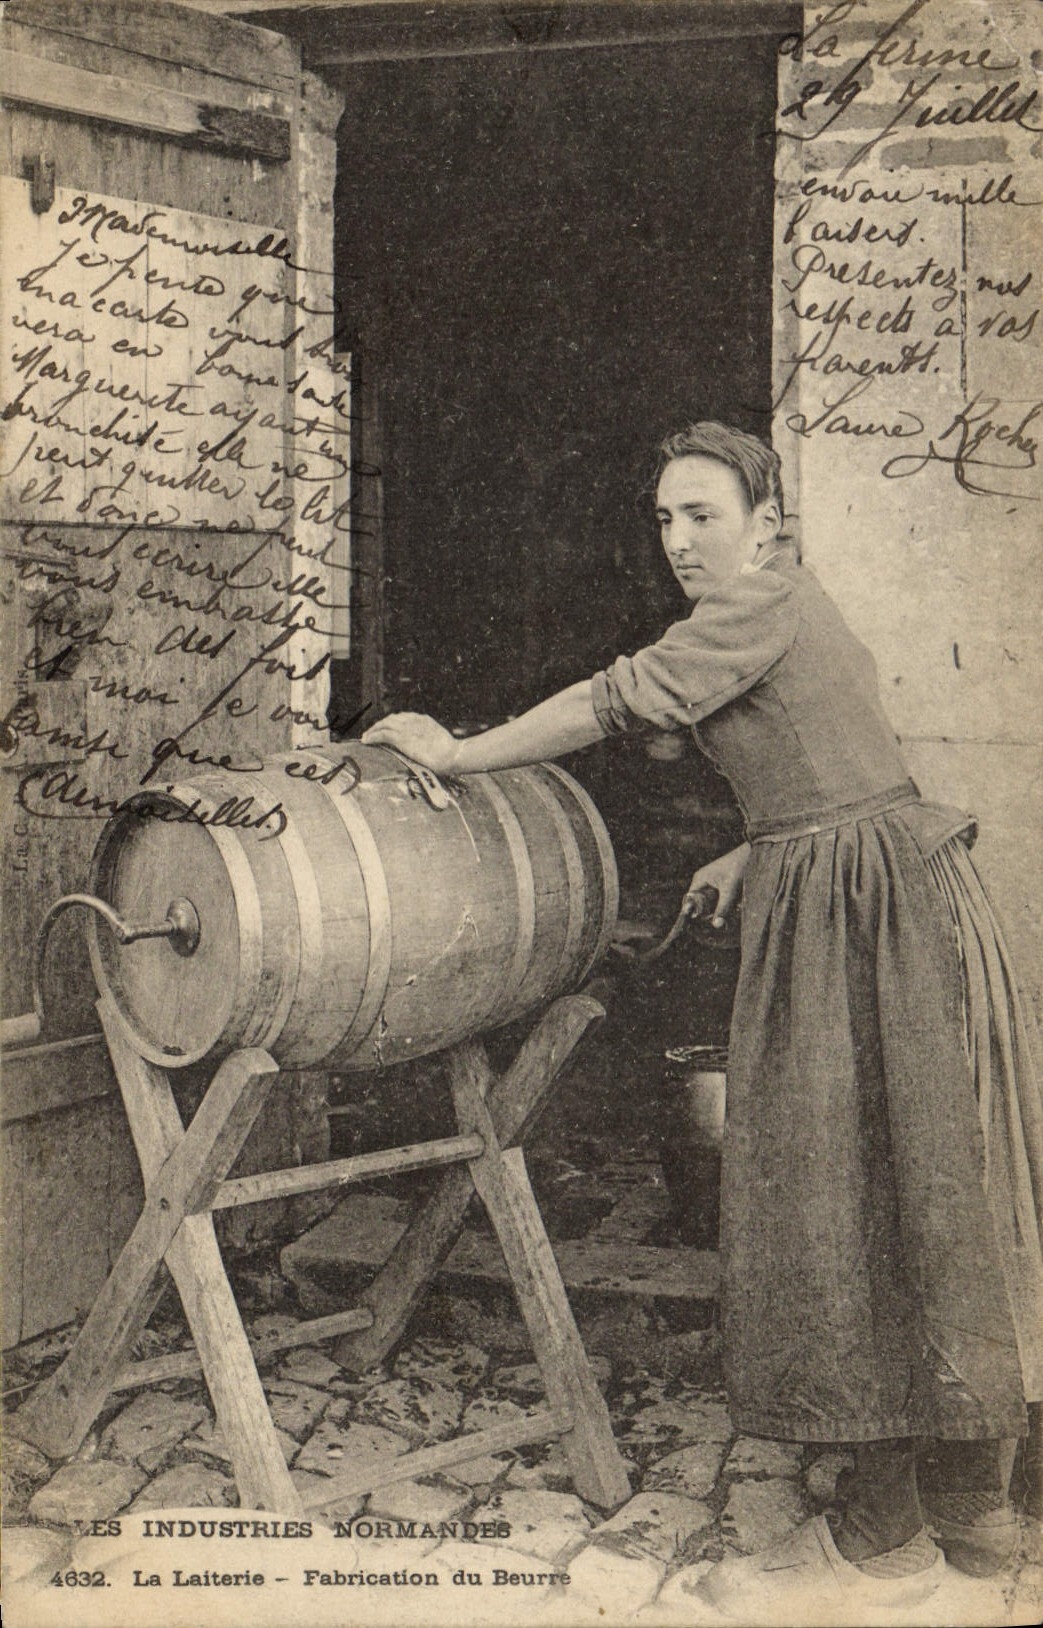 La ferme
29 Juillet
Mademoiselle
Je pense que
ma carte vous trou
vera en bonne sante
Marguerite ayant une
bronchite elle ne
peut quitter le lit
et donc ne peut
vous ecrire elle
vous embrasse
bien des fois
et moi je vous
ainsi que ces
(demoiselles)
envoie mille
baisers.
Presentez nos
respects a vos
parents.
Laure Rocher
LES INDUSTRIES NORMANDES
4632. La Laiterie - Fabrication du Beurre